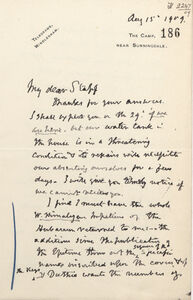 Aug 15th 1909.
TELEGRAMS,
WINDLESHAM.
THE CAMP,
NEAR SUNNINGDALE.
186
My dear Stapf
Thanks for your answer.
I shall expect you on the 29th if we
are here, but our water tank in
the house is in a threatening
condition & its repairs will necessitate
our absenting ourselves for a few
days. I will give you timely notice if
we cannot receive you.
I find I must have the whole
W. Himalayan Impatiens of the
Herbarium returned to me – the
additions since the publication
of the Epitome throw out the specific
names inscribed upon the covers &
Duthie wants the members of